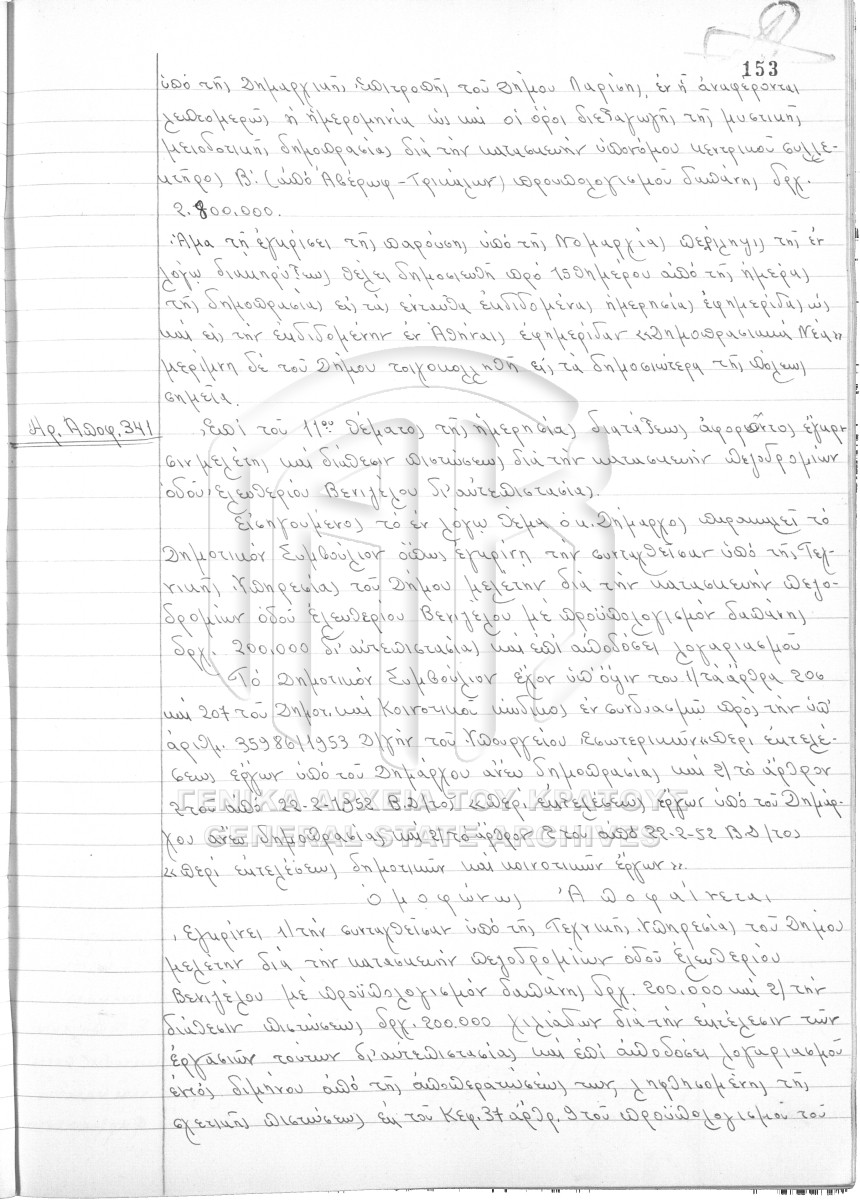 153
ὑπὸ τῆς Δημαρχιακῆς Ἐπιτροπῆς τοῦ Δήμου Λαρίσης, ἐν ᾗ ἀναφέρονται
λεπτομερῶς ἡ ἡμερομηνία ὡς καὶ οἱ ὅροι διεξαγωγῆς τῆς μυστικῆς
μειοδοτικῆς δημοπρασίας διὰ τὴν κατασκευὴν ὑπονόμου κεντρικοῦ συλλε-
κτῆρος Β΄. (ἀπὸ Ἀβέρωφ-Τρικάλων) προυπολογισμοῦ δαπάνης δρχ.
2.800.000.
Ἅμα τῇ ἐγκρίσει τῆς παρούσης ὑπὸ τῆς Νομαρχίας περίληψις τῆς ἐν
λόγῳ διακηρύξεως θέλει δημοσιευθῆ πρὸ 15θημέρου ἀπὸ τῆς ἡμέρας
τῆς δημοπρασίας εἰς τὰς ἐνταῦθα ἐκδιδομένας ἡμερησίας ἐφημερίδας ὡς
καὶ εἰς τὴν ἐκδιδομένην ἐν Ἀθήναις ἐφημερίδαν «Δημοπρασιακὰ Νέα»
μερίμνῃ δὲ τοῦ Δήμου τοιχοκολληθῆ εἰς τὰ δημοσιώτερα τῆς πόλεως
σημεῖα.
Ἀρ. Ἀποφ. 341
Ἐπὶ τοῦ 11ου θέματος τῆς ἡμερησίας διατάξεως ἀφορῶντος ἔγκρι-
σιν μελέτης καὶ διάθεσιν πιστώσεως διὰ τὴν κατασκευὴν πεζοδρομίων
ὁδοῦ Ἐλευθερίου Βενιζέλου δι' αὐτεπιστασίας.
Εἰσηγούμενος τὸ ἐν λόγῳ θέμα ὁ κ. Δήμαρχος παρακαλεῖ τὸ
Δημοτικὸν Συμβούλιον ὅπως ἐγκρίνῃ τὴν συνταχθεῖσαν ὑπὸ τῆς Τεχ-
νικῆς Ὑπηρεσίας τοῦ Δήμου μελέτην διὰ τὴν κατασκευὴν πεζο-
δρομίων ὁδοῦ Ἐλευθερίου Βενιζέλου μὲ προϋπολογισμὸν δαπάνης
δρχ. 200.000 δι' αὐτεπιστασίας καὶ ἐπὶ ἀποδόσει λογαριασμοῦ
Τὸ Δημοτικὸν Συμβούλιον ἔχον ὑπ' ὄψιν του 1/ τὰ ἄρθρα 206
καὶ 207 τοῦ Δημοτ. καὶ Κοινοτικοῦ κώδικος ἐν συνδυασμῷ πρὸς τὴν ὑπ'
ἀριθμ. 35986/1953 Δ/γὴν τοῦ Ὑπουργείου Ἐσωτερικῶν «περὶ ἐκτελέ-
σεως ἔργων ὑπὸ τοῦ Δημάρχου ἄνευ δημοπρασίας καὶ 2/ τὸ ἄρθρον
2 τοῦ ἀπὸ 22-2-1952 Β.Δ/τος «περὶ ἐκτελέσεως ἔργων ὑπὸ τοῦ Δημάρ-
χου ἄνευ δημοπρασίας καὶ 2/ τὸ ἄρθρον 2 τοῦ ἀπὸ 22-2-52 Β.Δ/τος
«περὶ ἐκτελέσεως δημοτικῶν καὶ κοινοτικῶν ἔργων».
Ὁμοφώνως Ἀποφαίνεται
Ἐγκρίνει 1/ τὴν συνταχθεῖσαν ὑπὸ τῆς Τεχνικῆς Ὑπηρεσίας τοῦ Δήμου
μελέτην διὰ τὴν κατασκευὴν πεζοδρομίων ὁδοῦ Ἐλευθερίου
Βενιζέλου μὲ προϋπολογισμὸν δαπάνης δρχ. 200.000 καὶ 2/ τὴν
διάθεσιν πιστώσεως δρχ. 200.000 χιλιάδων διὰ τὴν ἐκτέλεσιν τῶν
ἐργασιῶν τούτων δι' αὐτεπιστασίας καὶ ἐπὶ ἀποδόσει λογαριασμοῦ
ἐντὸς διμήνου ἀπὸ τῆς ἀποπερατώσεώς των, ληφθησομένης τῆς
σχετικῆς πιστώσεως ἐκ τοῦ Κεφ. 37 ἄρθρ. 9 τοῦ προϋπολογισμοῦ τοῦ
ΓΕΝΙΚΑ ΑΡΧΕΙΑ ΤΟΥ ΚΡΑΤΟΥΣ
GENERAL STATE ARCHIVES